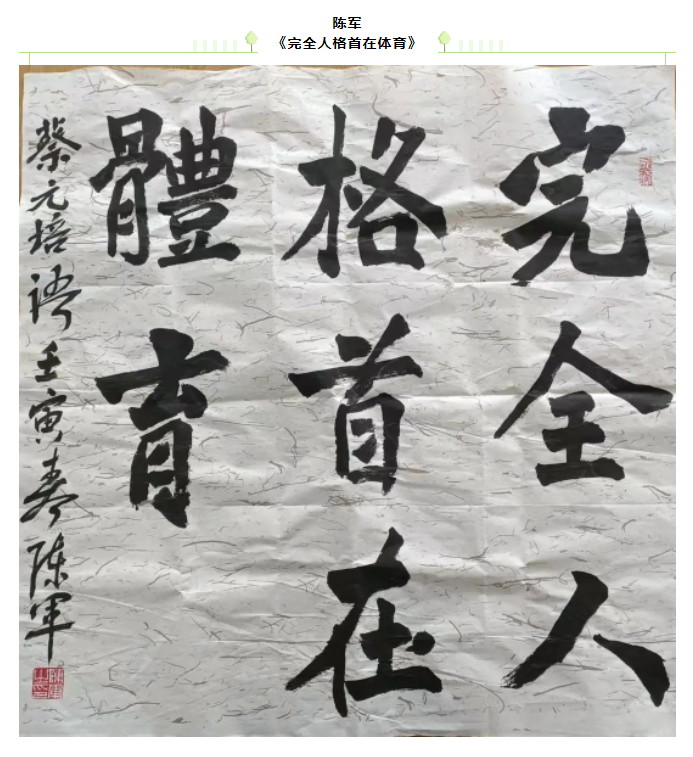 陈军
《完全人格首在体育》
完全人
格首在
體育
蔡元培语壬寅春陈军